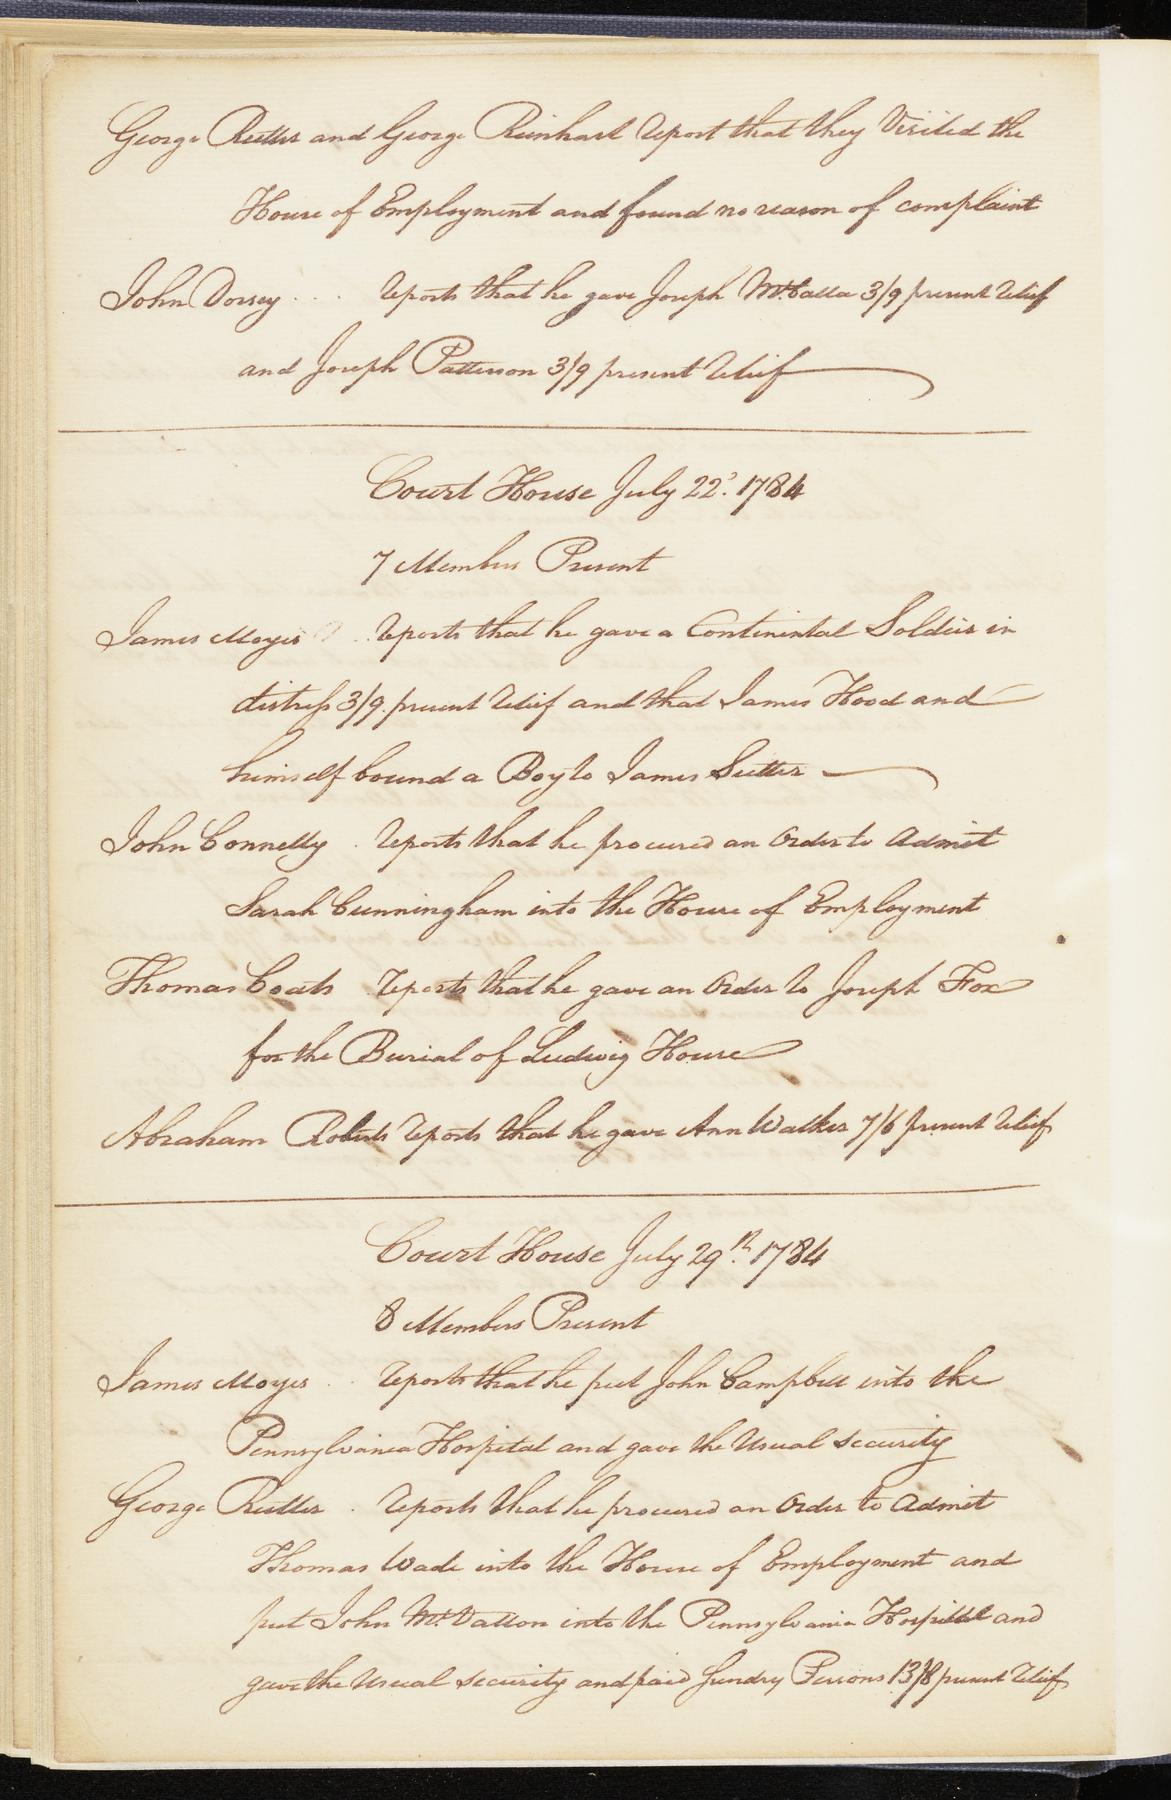 George Rutter and George Reinhart report that they Visited the
House of Employment and found no reason of complaint
John Dorsey . . . reports that he gave Joseph McCalla 3/9 present relief
and Joseph Patterson 3/9 present relief
Court House July 22d. 1784
7 Members Present
James Moyes . . reports that he gave a Continental Soldier in
distress 3/9 present relief and that James Hood and
himself bound a Boy to James Sutter
John Connelly . reports that he procured an Order to Admit
Sarah Cunningham into the House of Employment
Thomas Coats . reports that he gave an Order to Joseph Fox
for the Burial of Ludwig House
Abraham Roberts reports that he gave Ann Walker 7/6 present relief
Court House July 29th. 1784
8 Members Present
James Moyes . . reports that he put John Campbell into the
Pennsylvania Hospital and gave the Usual security
George Rutter . reports that he procured an Order to Admit
Thomas Wade into the House of Employment and
put John into the Pennsylvania Hospital and
gave the Usual security and paid Sundry Persons 13/8 present relief